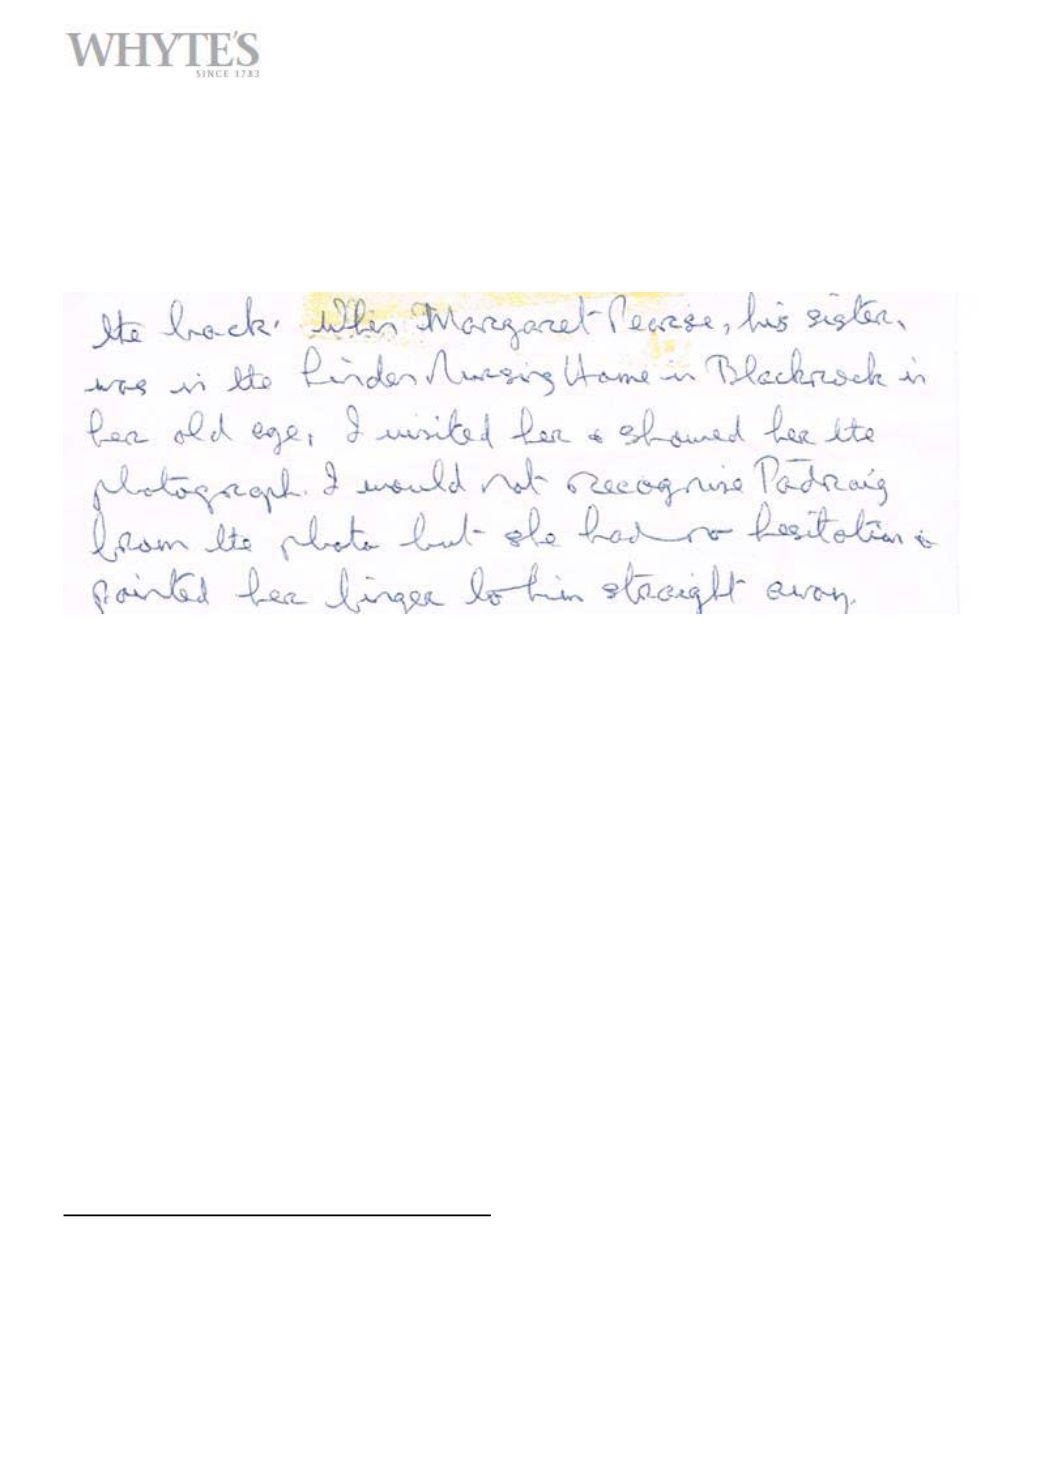 WHYTE'S
SINCE 1783
the back. When Margaret Pearse, his sister,
was in the Linden Nursing Home in Blackrock in
her old age, I visited her & showed her the
photograph. I would not recognise Pádraig
from the photo but she had no hesitation &
pointed her finger to him straight away.